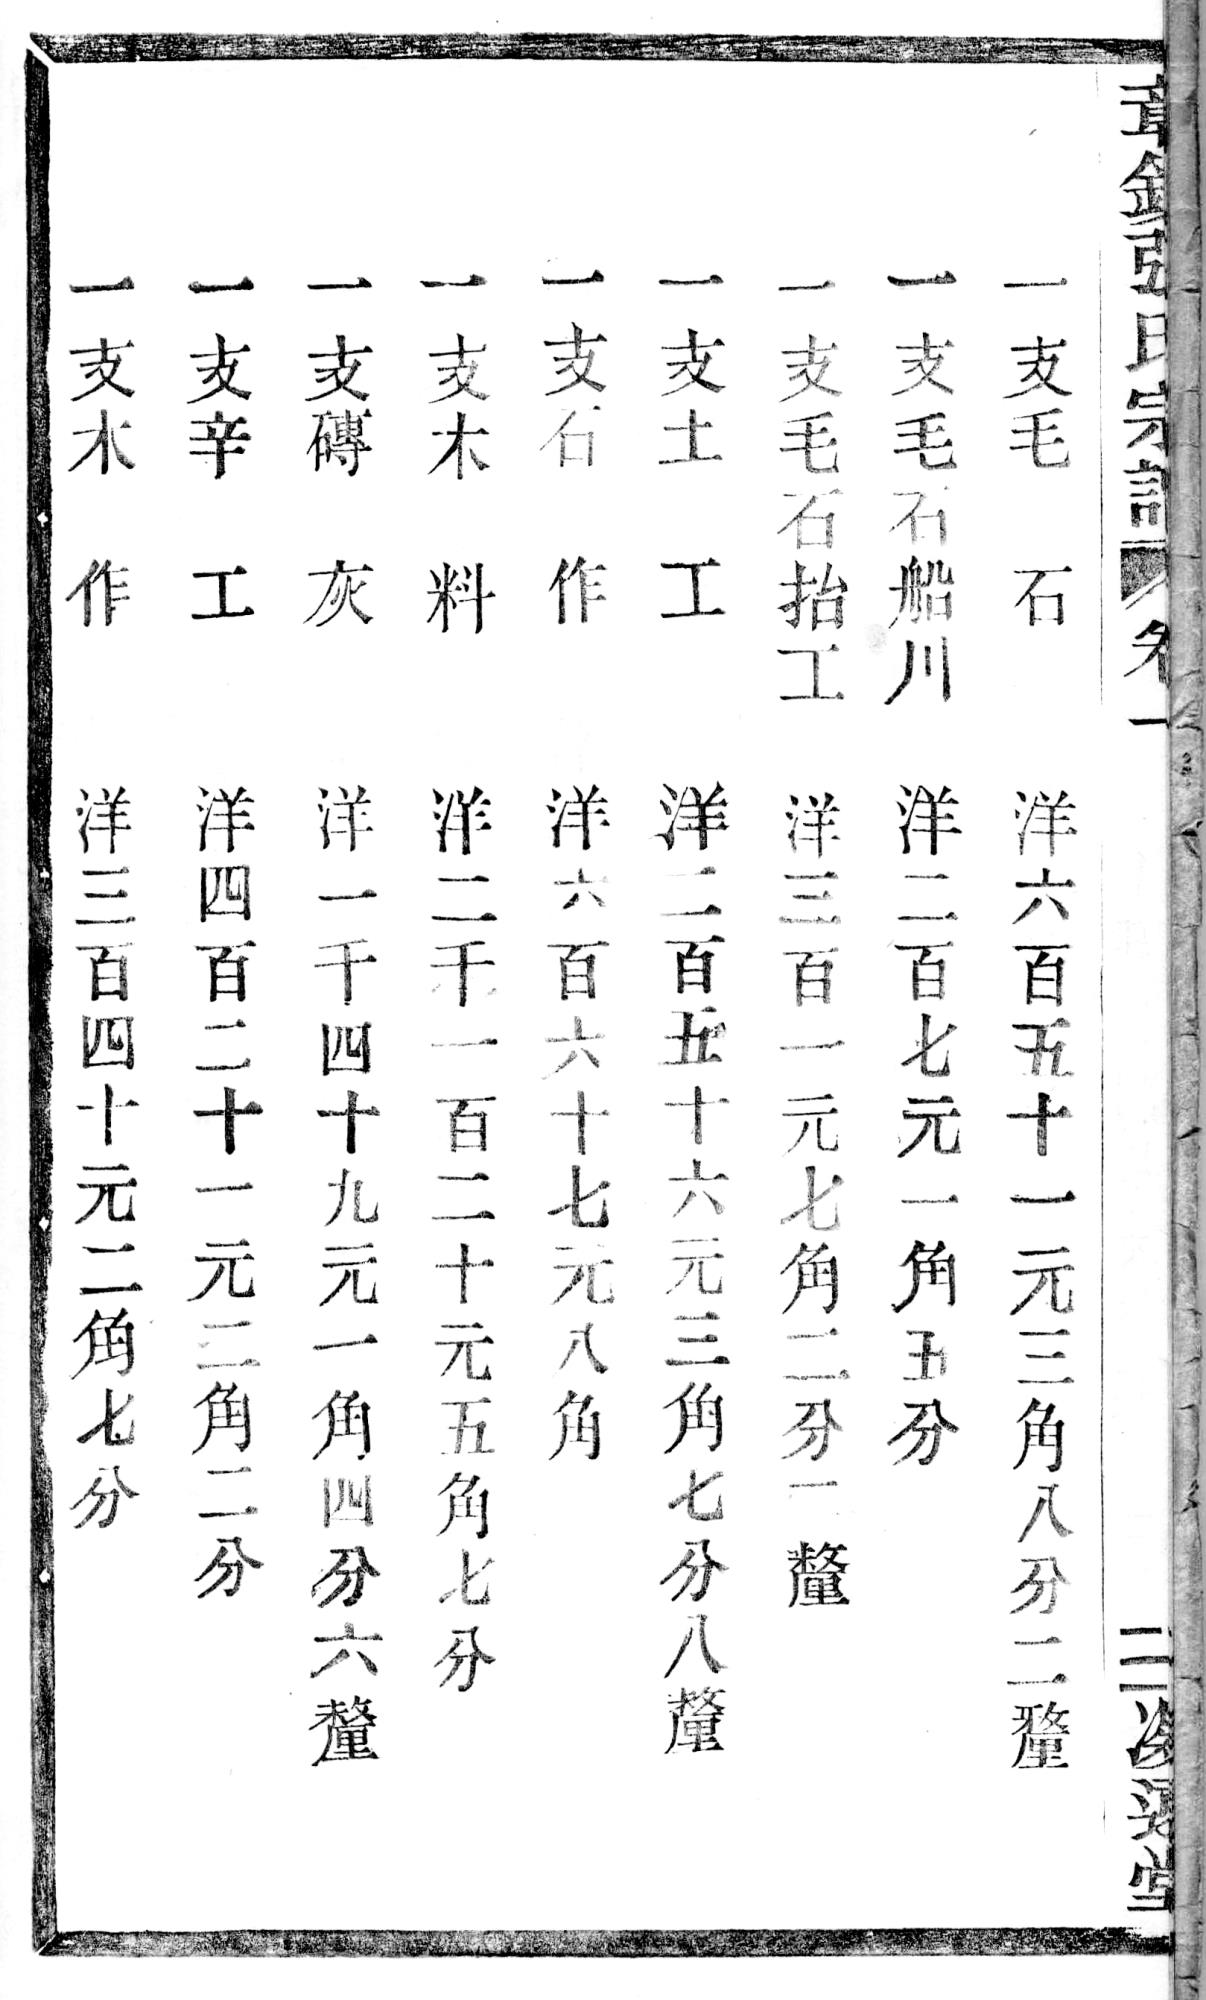 章鎮張氏宗譜 卷一 二 凝翠堂
一支毛石 洋六百五十一元三角八分二釐
一支毛石船川 洋二百七元一角五分
一支毛石抬工 洋三百一元七角二分一釐
一支土工 洋二百五十六元三角七分八釐
一支石作 洋六百六十七元八角
一支木料 洋二千一百二十元五角七分
一支磚灰 洋一千四十九元一角四分六釐
一支辛工 洋四百二十一元二角二分
一支木作 洋三百四十元二角七分